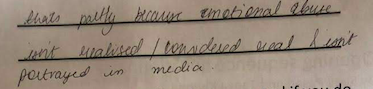 thats partly because emotional abuse
isn't realised / considered real & isn't
portrayed in media.
if you do